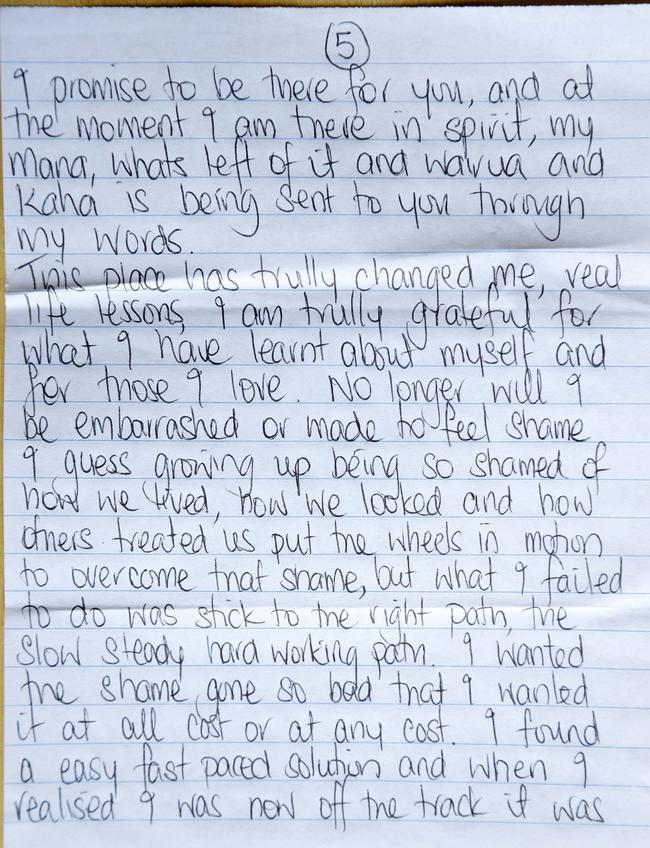 5
I promise to be there for you, and at
the moment I am there in spirit, my
mana, whats left of it and wairua and
Kaha is being sent to you through
my words.
This place has trully changed me, real
life lessons, I am trully grateful for
what I have learnt about myself and
for those I love. No longer will I
be embarrashed or made to feel shame
I guess growing up being so shamed of
how we lived, how we looked and how
others treated us put the wheels in motion
to overcome that shame, but what I failed
to do was stick to the right path, the
slow steady hard working path. I wanted
the shame gone so bad that I wanted
it at all cost or at any cost. I found
a easy fast paced solution and when I
realised I was now off the track it was